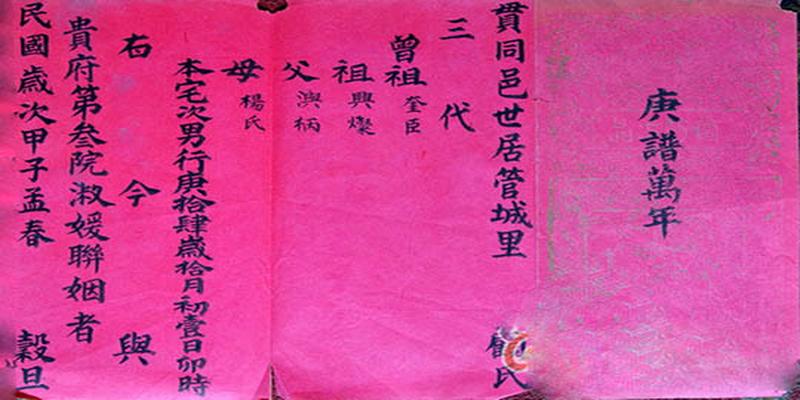 庚譜萬年
貫同邑世居管城里 氏
三代
曾祖 奎臣
祖 興燦
父 柄
母 楊氏
本宅次男行庚拾肆歲拾月初壹日卯時
右 今 與
貴府第叁院淑媛聯姻者
民國歲次甲子孟春 穀旦